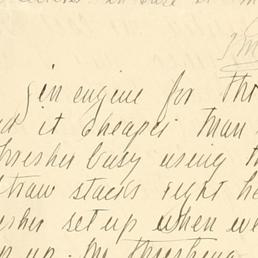 gin engine for thr
it cheaper than
thresher busy using th
straw stacks right he
set up when we
up. the threshing